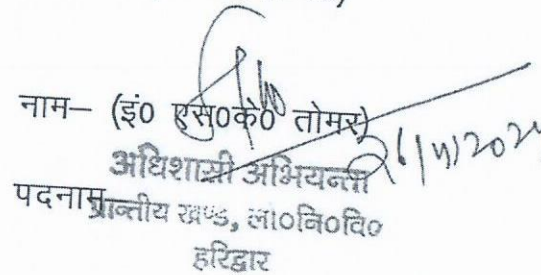 नाम— (इं0 एस0के0 तोमर)
अधिशासी अभियन्ता
पदनाम
प्रान्तीय खण्ड, लो०नि०वि०
हरिद्वार